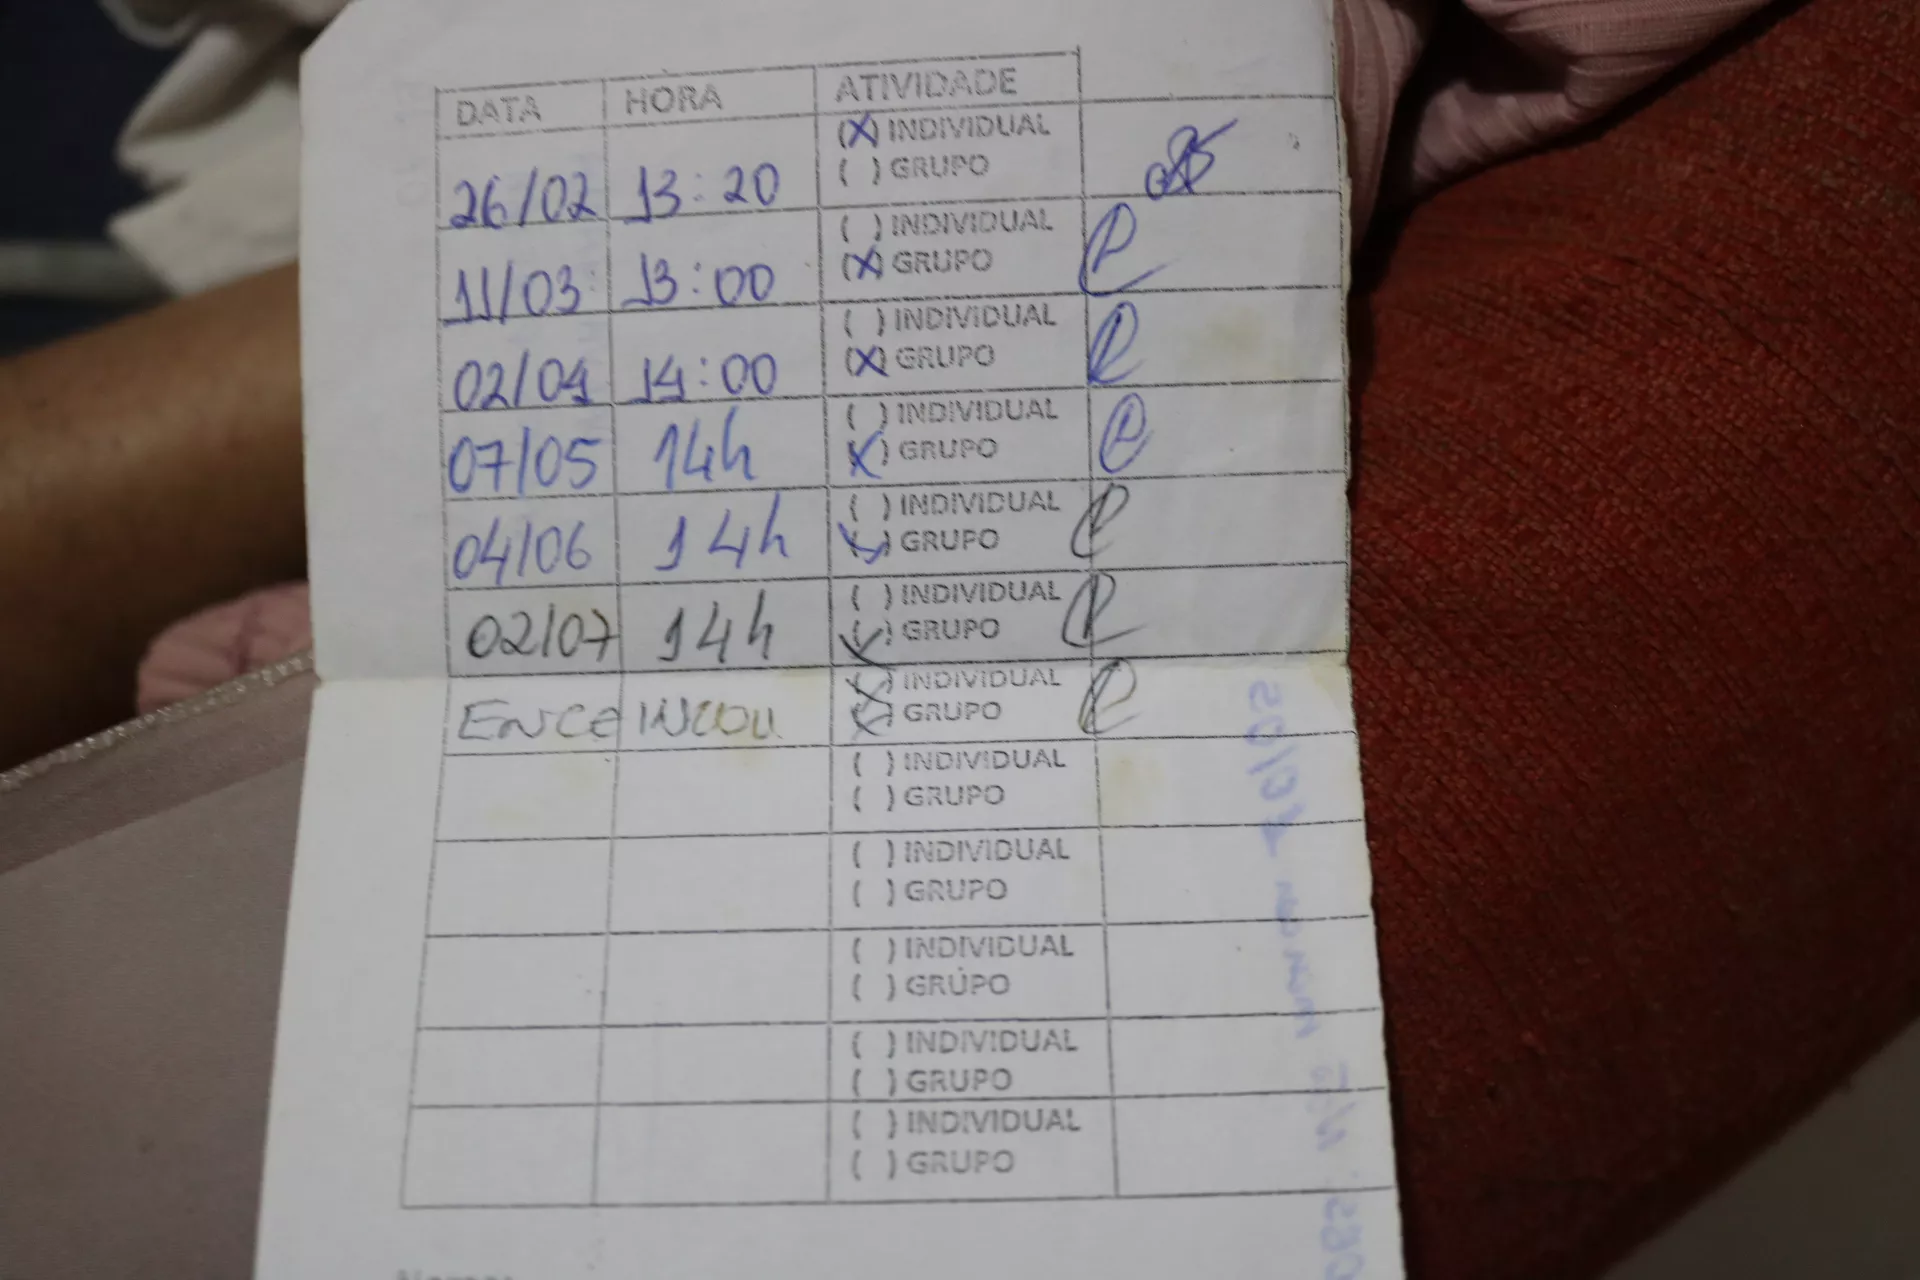 DATA HORA ATIVIDADE
26/02 13:20 (X) INDIVIDUAL
( ) GRUPO
11/03 13:00 ( ) INDIVIDUAL
(X) GRUPO
02/04 14:00 ( ) INDIVIDUAL
(X) GRUPO
07/05 14h ( ) INDIVIDUAL
(X) GRUPO
04/06 14h ( ) INDIVIDUAL
(X) GRUPO
02/07 14h ( ) INDIVIDUAL
(X) GRUPO
(X) INDIVIDUAL
(X) GRUPO
( ) INDIVIDUAL
( ) GRUPO
( ) INDIVIDUAL
( ) GRUPO
( ) INDIVIDUAL
( ) GRUPO
( ) INDIVIDUAL
( ) GRUPO
( ) INDIVIDUAL
( ) GRUPO